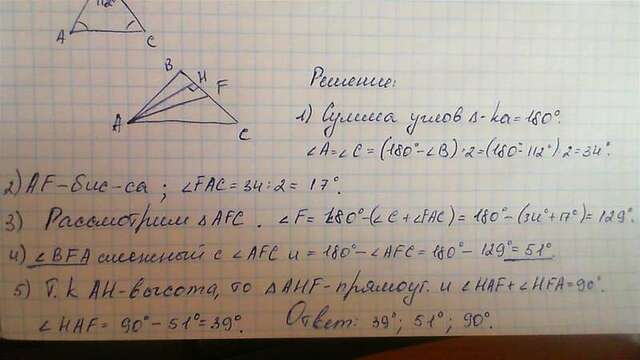 112°
A C
B
H
F
A
C
Решение:
1) Сумма углов Δ-ка=180°.
∠A=∠C=(180°-∠B):2=(180°-112°):2=34°.
2) AF-бис-са; ∠FAC=34:2=17°.
3) Рассмотрим ΔAFC. ∠F=180°-(∠C+∠FAC)=180°-(34°+17°)=129°.
4) ∠BFA смежный с ∠AFC и =180°-∠AFC=180°-129°=51°.
5) Т.к AH-высота, то ΔAHF-прямоуг. и ∠HAF+∠HFA=90°.
∠HAF=90°-51°=39°. Ответ: 39°; 51°; 90°.